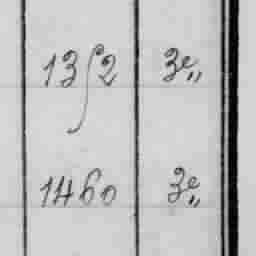 1352 3e„
1460 3e„